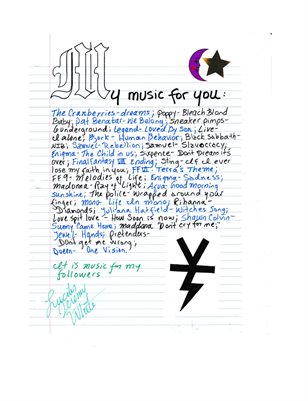 My music for you:
The Cranberries-dreams; Poppy-Bleach Blond
Baby; Pat Benatar-We Belong; Sneaker pimps-
6underground; Legend-Loved By Son; Live-
I alone; Bjork-Human Behavior; Black Sabbath-
NIB; Samuel-Rebellion; Samuel-Slavocracy;
Enigma-The Child in us; Sixpence-Dont Dream its
over; Final fantasy VII Ending; Sting-If I ever
lose my faith in you; FF VI-Terra's Theme;
FF9-Melodies of Life; Enigma-Sadness;
madonna-Ray of Light; Aqua-Good morning
sunshine; The Police-Wrapped around your
finger; mono-Life In mono; Rihanna-
Diamonds; Juliana Hatfield-Witches Song;
Love spit love-How Soon is now; Shawn Colvin-
Sunny Came Home; maddona "Dont cry for me;
Jewel-Hands; Pretenders-
Dont get me wrong;
Queen-One Vision;
It is music for my
followers
White